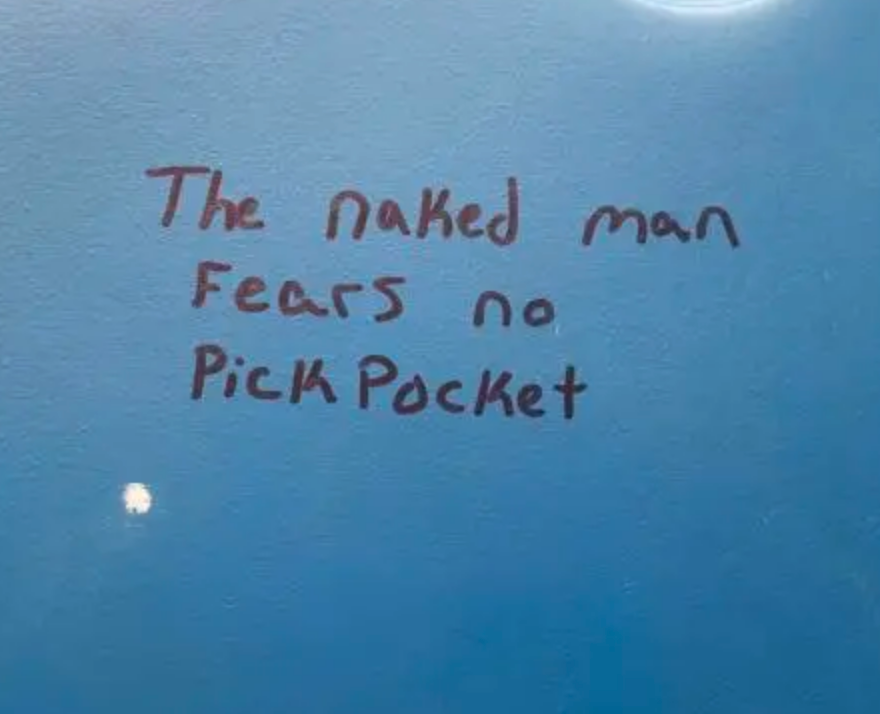 The naked man
Fears no
PickPocket